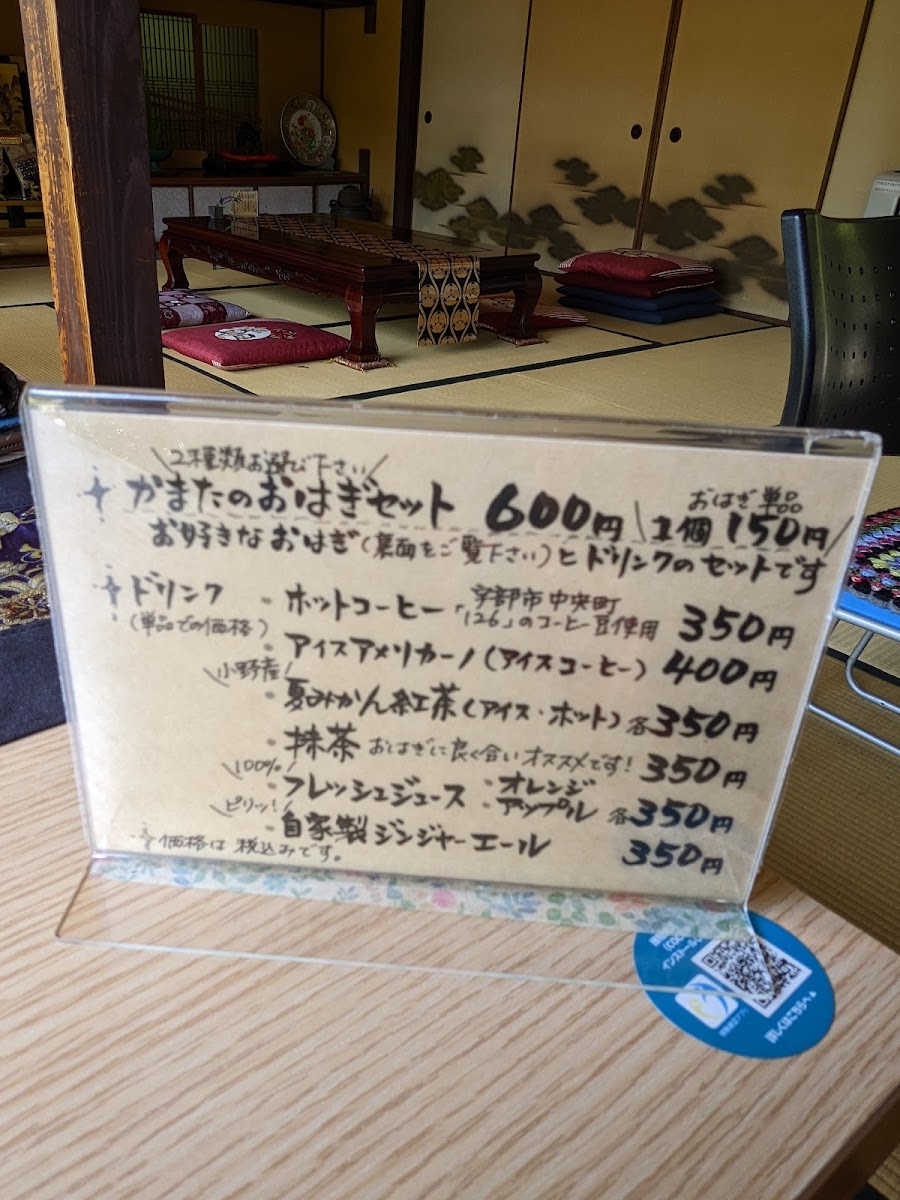 \2種類お選び下さい/
かまたのおはぎセット 600円 \おはぎ単品 1個 150円/
お好きなおはぎ(裏面をご覧下さい)とドリンクのセットです
ドリンク
(単品での価格)
・ホットコーヒー 「宇部市中央町 126」のコーヒー豆使用 350円
・アイスアメリカーノ(アイスコーヒー) 400円
\小野産/
・夏みかん紅茶(アイス・ホット) 各350円
・抹茶 おはぎに良く合いオススメです! 350円
\100%/
・フレッシュジュース ・オレンジ ・アップル 各350円
\ピリッ!/
・自家製ジンジャーエール 350円
価格は税込みです。
インストール
詳しくはこちらへ